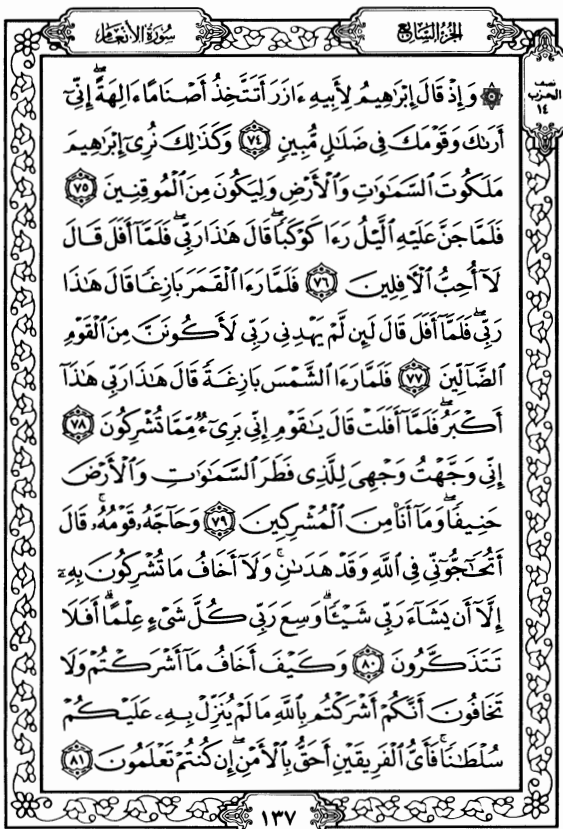 الجزء السابع
سورة الأنعام
نصف
الحزب
١٤
۞ وَإِذْ قَالَ إِبْرَٰهِيمُ لِأَبِيهِ ءَازَرَ أَتَتَّخِذُ أَصْنَامًا ءَالِهَةً ۖ إِنِّىٓ
أَرَىٰكَ وَقَوْمَكَ فِى ضَلَـٰلٍ مُّبِينٍ ٧٤ وَكَذَٰلِكَ نُرِىٓ إِبْرَٰهِيمَ
مَلَكُوتَ ٱلسَّمَـٰوَٰتِ وَٱلْأَرْضِ وَلِيَكُونَ مِنَ ٱلْمُوقِنِينَ ٧٥
فَلَمَّا جَنَّ عَلَيْهِ ٱلَّيْلُ رَءَا كَوْكَبًا ۖ قَالَ هَـٰذَا رَبِّى ۖ فَلَمَّآ أَفَلَ قَالَ
لَآ أُحِبُّ ٱلْـَٔافِلِينَ ٧٦ فَلَمَّا رَءَا ٱلْقَمَرَ بَازِغًا قَالَ هَـٰذَا
رَبِّى ۖ فَلَمَّآ أَفَلَ قَالَ لَئِن لَّمْ يَهْدِنِى رَبِّى لَأَكُونَنَّ مِنَ ٱلْقَوْمِ
ٱلضَّآلِّينَ ٧٧ فَلَمَّا رَءَا ٱلشَّمْسَ بَازِغَةً قَالَ هَـٰذَا رَبِّى هَـٰذَآ
أَكْبَرُ ۖ فَلَمَّآ أَفَلَتْ قَالَ يَـٰقَوْمِ إِنِّى بَرِىٓءٌ مِّمَّا تُشْرِكُونَ ٧٨
إِنِّى وَجَّهْتُ وَجْهِىَ لِلَّذِى فَطَرَ ٱلسَّمَـٰوَٰتِ وَٱلْأَرْضَ
حَنِيفًا ۖ وَمَآ أَنَا۠ مِنَ ٱلْمُشْرِكِينَ ٧٩ وَحَآجَّهُۥ قَوْمُهُۥ ۚ قَالَ
أَتُحَـٰٓجُّوٓنِّى فِى ٱللَّهِ وَقَدْ هَدَىٰنِ ۚ وَلَآ أَخَافُ مَا تُشْرِكُونَ بِهِۦٓ
إِلَّآ أَن يَشَآءَ رَبِّى شَيْـًٔا ۗ وَسِعَ رَبِّى كُلَّ شَىْءٍ عِلْمًا ۗ أَفَلَا
تَتَذَكَّرُونَ ٨٠ وَكَيْفَ أَخَافُ مَآ أَشْرَكْتُمْ وَلَا
تَخَافُونَ أَنَّكُمْ أَشْرَكْتُم بِٱللَّهِ مَا لَمْ يُنَزِّلْ بِهِۦ عَلَيْكُمْ
سُلْطَـٰنًا ۚ فَأَىُّ ٱلْفَرِيقَيْنِ أَحَقُّ بِٱلْأَمْنِ ۖ إِن كُنتُمْ تَعْلَمُونَ ٨١
١٣٧